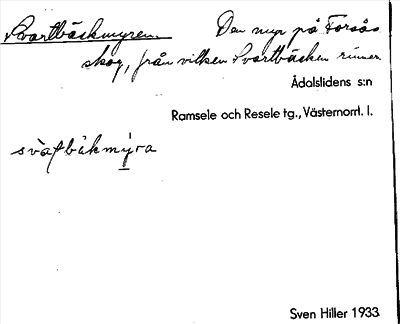 Svartbäckmyren. Den myr på Forsås
skog, från vilken Svartbäcken rinner.
Ådalslidens s:n
Ramsele och Resele tg., Västernorrl. l.
svàʈbäkmy̱ra
Sven Hiller 1933.